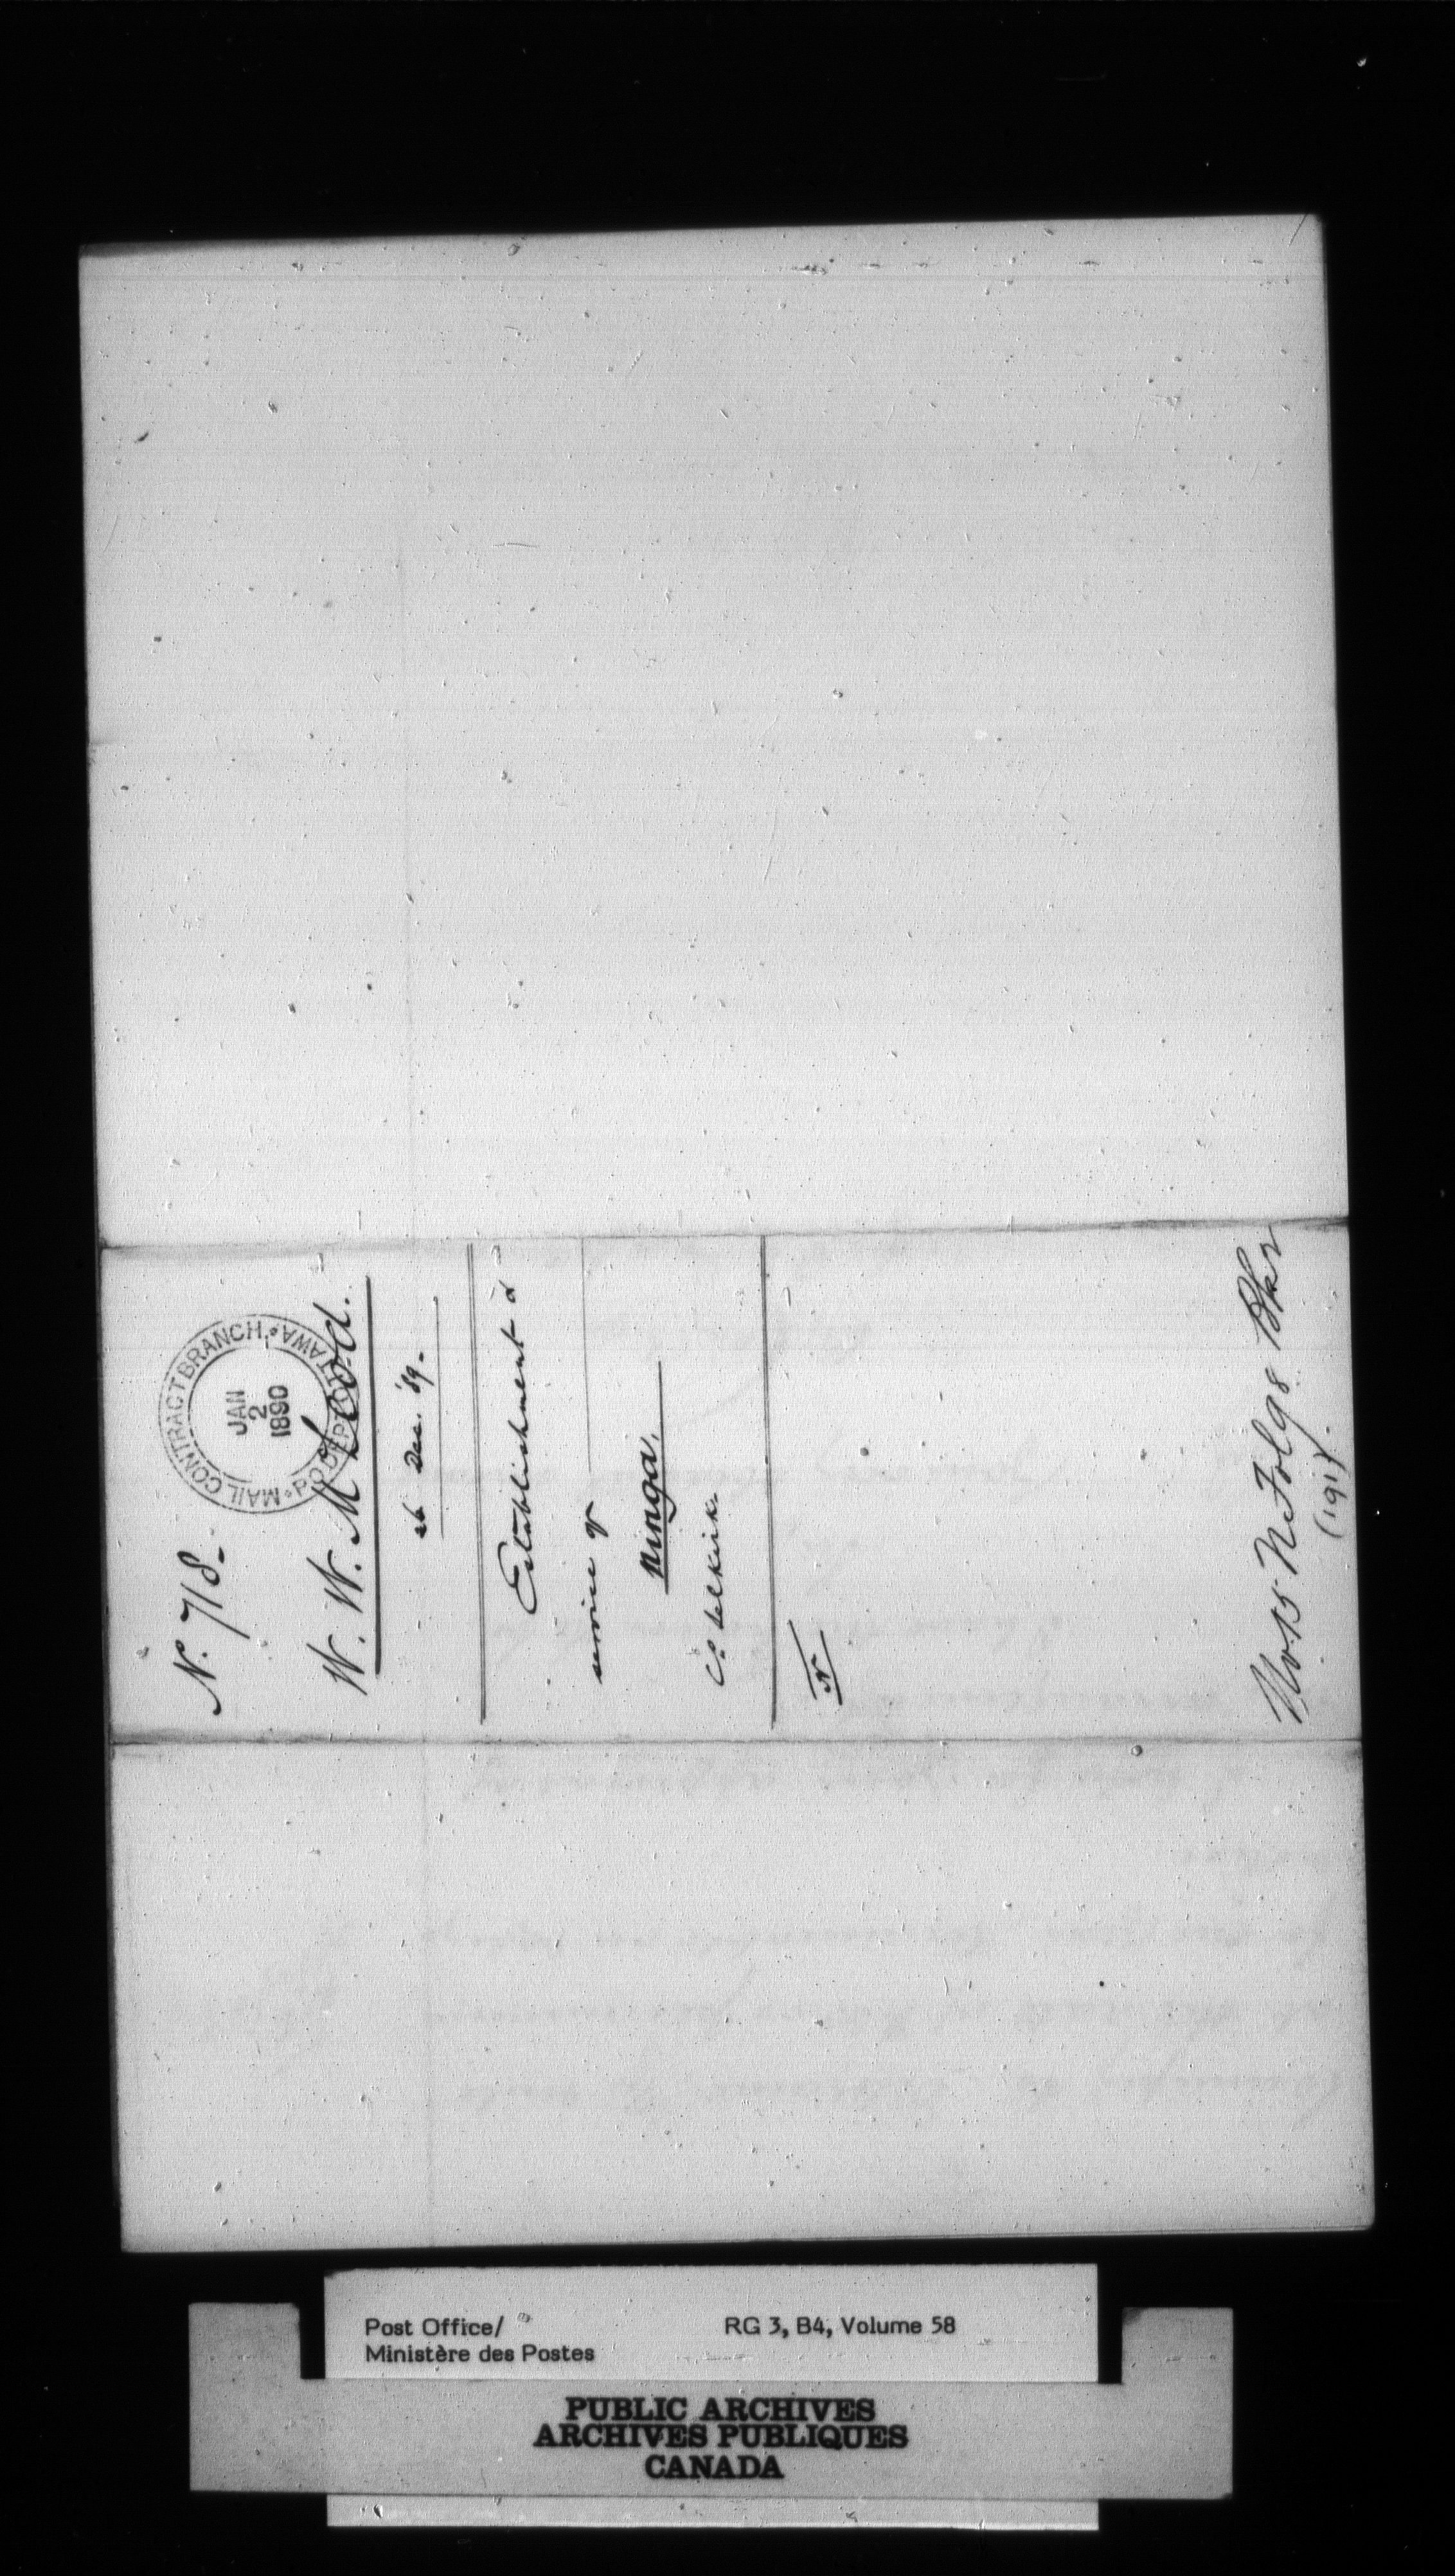 N. 718-
MAIL CONTRACT BRANCH. OTTAWA. P.O. DEPT
JAN
2
1890
W. W. McLeod.
26 Dec. '89-
Establishment &
service of
Ninga.
Co. Selkirk.
N
No. 15 N. Fol 98
(191)
Post Office/
Ministère des Postes
RG 3, B4, Volume 58
PUBLIC ARCHIVES
ARCHIVES PUBLIQUES
CANADA